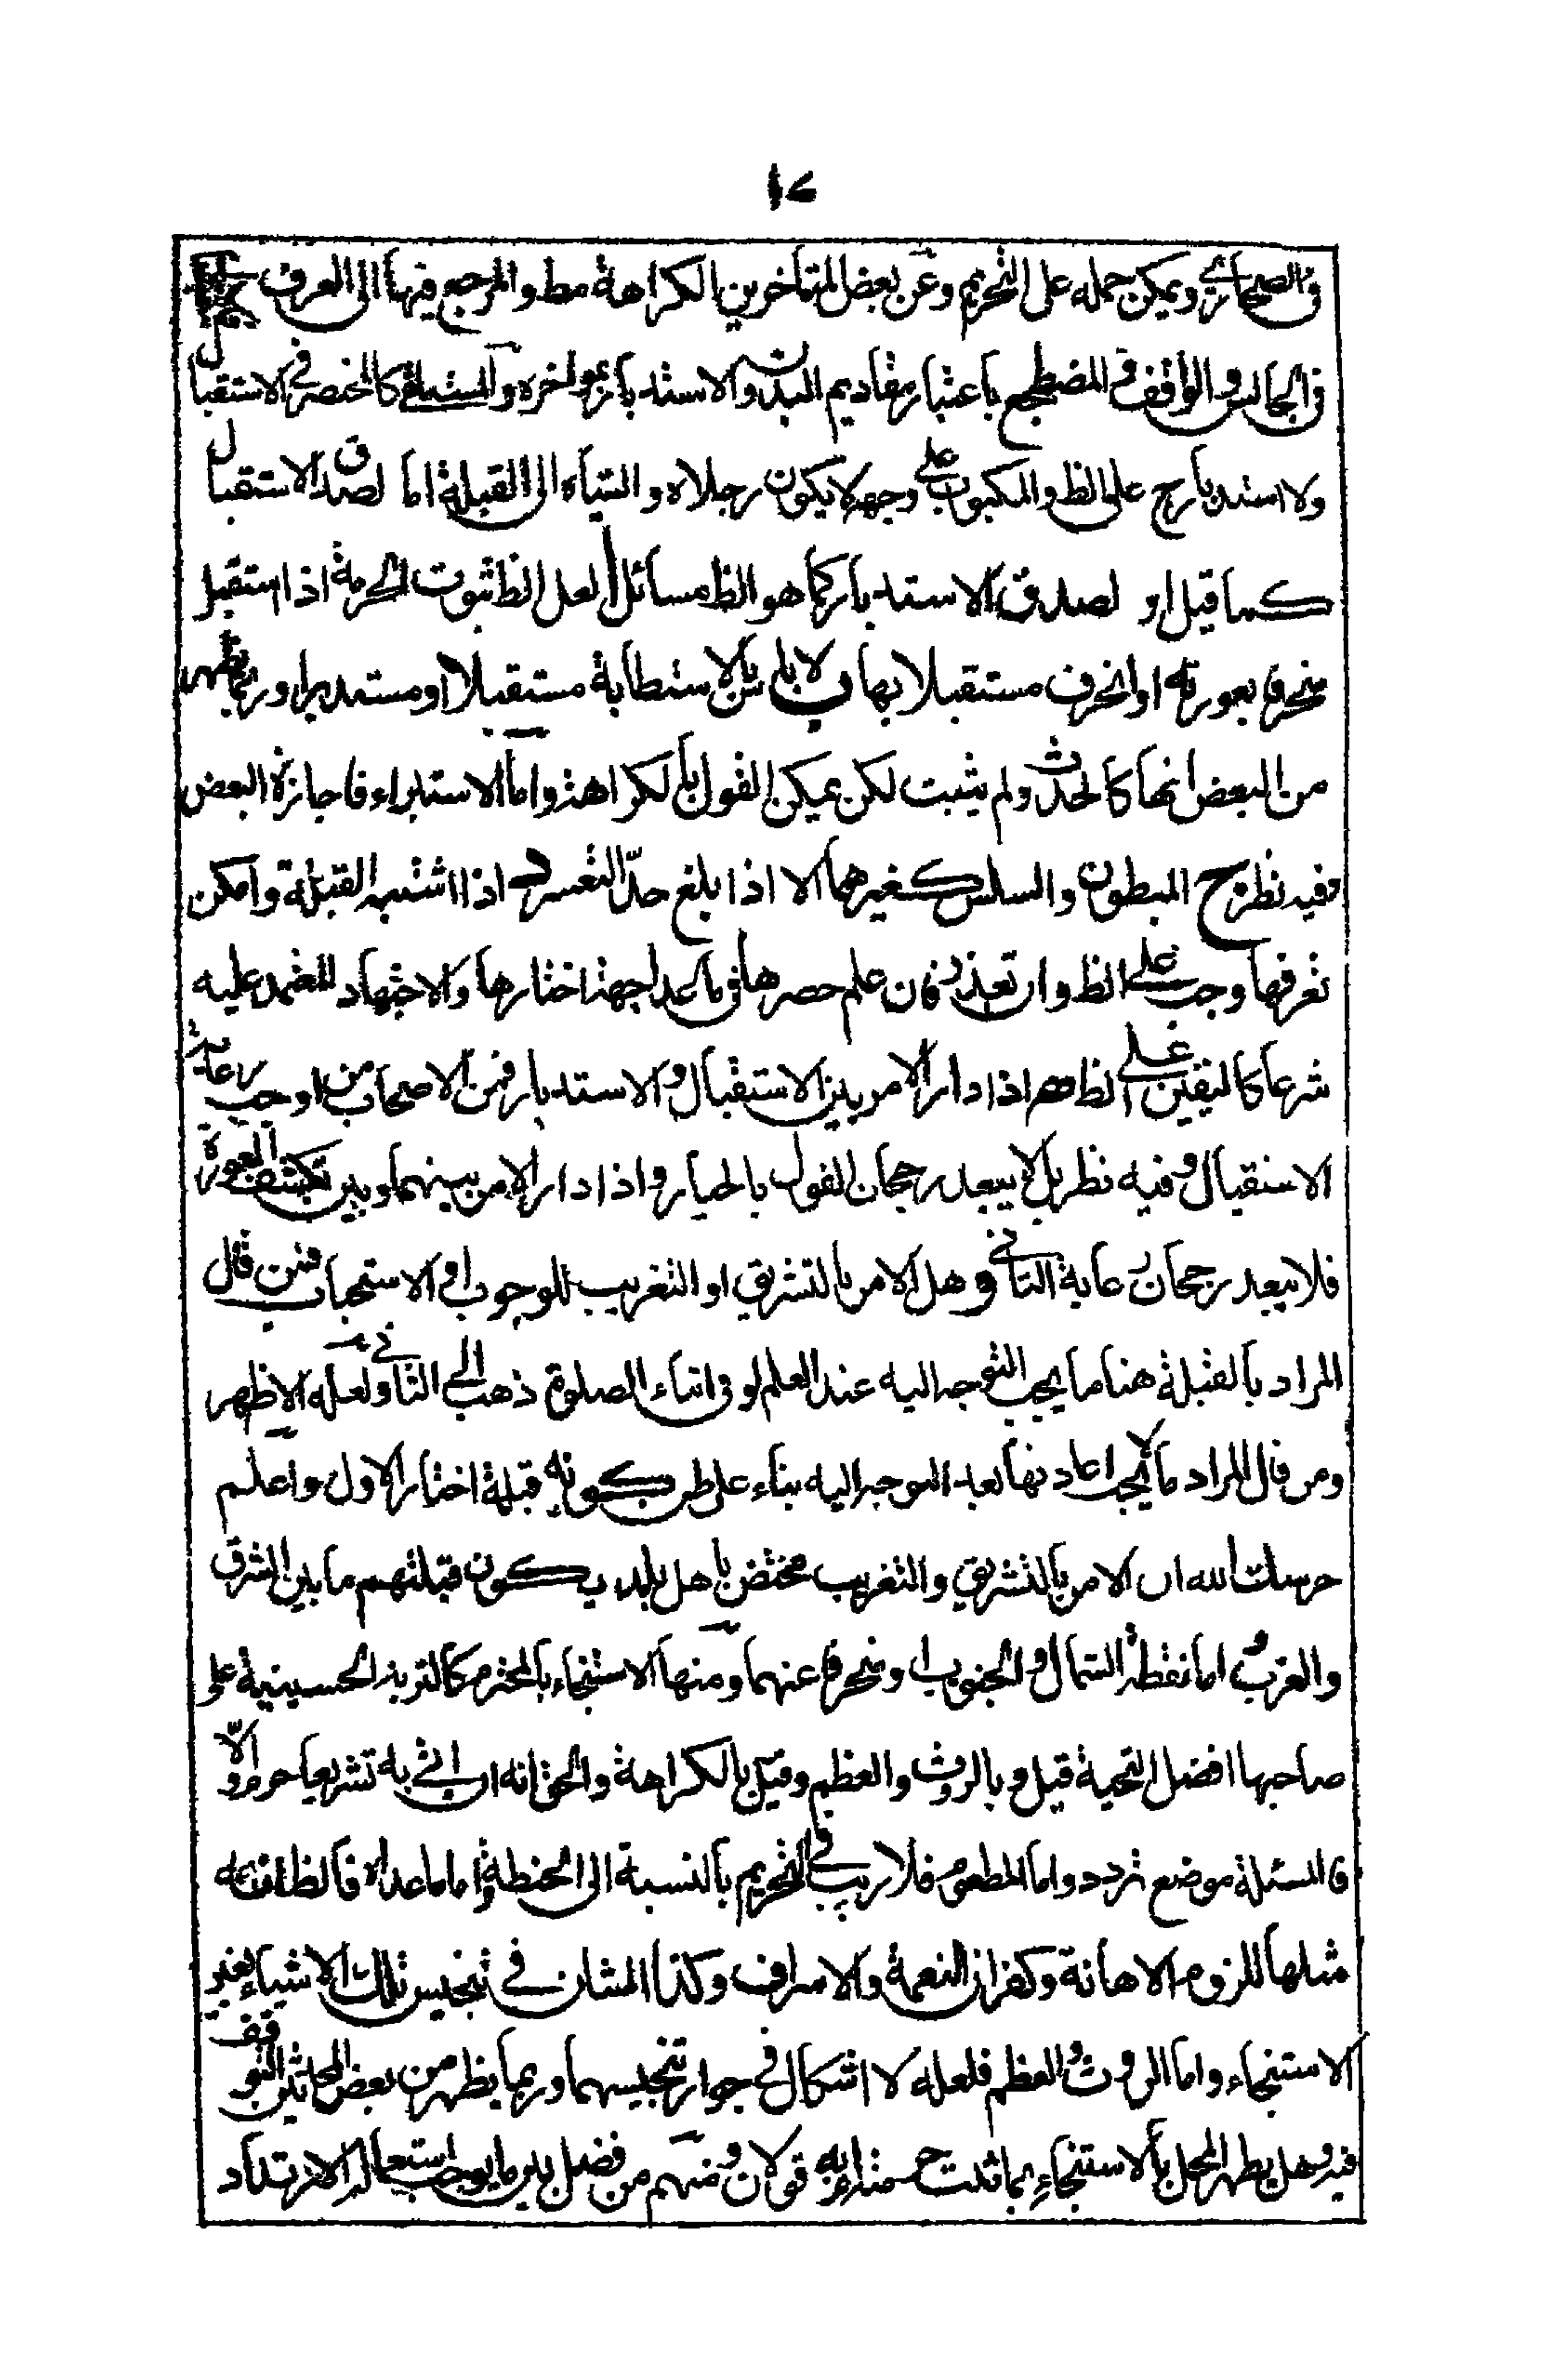 ١٧
في الصحاري ويمكن حمله على التحريم وعن بعض المتأخرين الكراهة مط والمرجع فيها الى العرف
في الجالس والواقف والمضطجع باعتبار مقاديم البدن والاستدبار بمواخره والمستلقى كالمختصر في الاستقبال
ولا استدبار ح على الظ والمكبوب على وجهه لا يكون رجلاه والتياه الى القبلة اما لصدق الاستقبال
كما قيل او لصدق الاستدبار كما هو الظ مسائل ا لعل الظ ثبوت الحرمة اذا استقبل
منحرفا بعورته او انحرف مستقبلا بها ولا باس بالاستطابة مستقبلا او مستدبرا وربما يظهر
من البعض انها كالحدث ولم يثبت لكن يمكن القول بالكراهة واما الاستبراء فاجازه البعض
وفيه نظر ج المبطون والسلس كغيرهما الا اذا بلغ حد التعسر د اذا اشتبه القبلة وامكن
تعرفها وجب على الظ وان تعذر فان علم حصرها في ما عدا جهة اختارها والاجتهاد المعتمد عليه
شرعا كاليقين على الظ اهم اذا دار الامر بين الاستقبال والاستدبار فمن الاصحاب من اوجب رعاية
الاستقبال وفيه نظر بل لا يبعد رجحان القول بالخيار واذا دار الامر بينهما وبين تكشف العورة
فلا يبعد رجحان رعاية الثاني و هل الامر بالتشريق او التغريب للوجوب او الاستحباب فمن قال
المراد بالقبلة هنا ما يجب التوجه اليه عند العلم لو في اثناء الصلوة ذهب الى الثاني ولعله الاظهر
ومن قال المراد ما لا يجب اعادتها بعد التوجه اليه بناء على ظن كونه قبلة اختار الاول واعلم
حرسك الله ان الامر بالتشريق والتغريب مختص باهل بلد يكون قبلتهم ما بين المشرق
والمغرب اما نقطة الشمال والجنوب او منحرفا عنهما ومنها الاستنجاء بالمحترم كالتربة الحسينية على
صاحبها افضل التحية قيل وبالروث والعظم وقيل بالكراهة والحق انه ان اتى به تشريعا حرم والا
فالمسئلة موضع تردد واما المطعوم فلا ريب في التحريم بالنسبة الى الحنطة واما ما عداه فالظ انه
مثلها للزوم الاهانة وكفران النعمة والاسراف وكذا الشان في تنجيس تلك الاشياء بغير
الاستنجاء واما الروث والعظم فلعله لا اشكال في جواز تنجيسهما وربما يظهر من بعض المحدثين التوقف
فيه وهل يطهر المحل بالاستنجاء بما ثبت حرمته به قولان ومنهم من فصل بين ما يوجب استعماله الارتداد